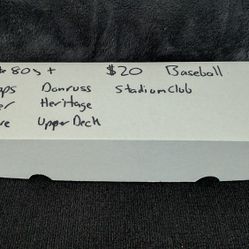 80s + $20 Baseball
Donruss Stadium Club
Heritage
Upper Deck